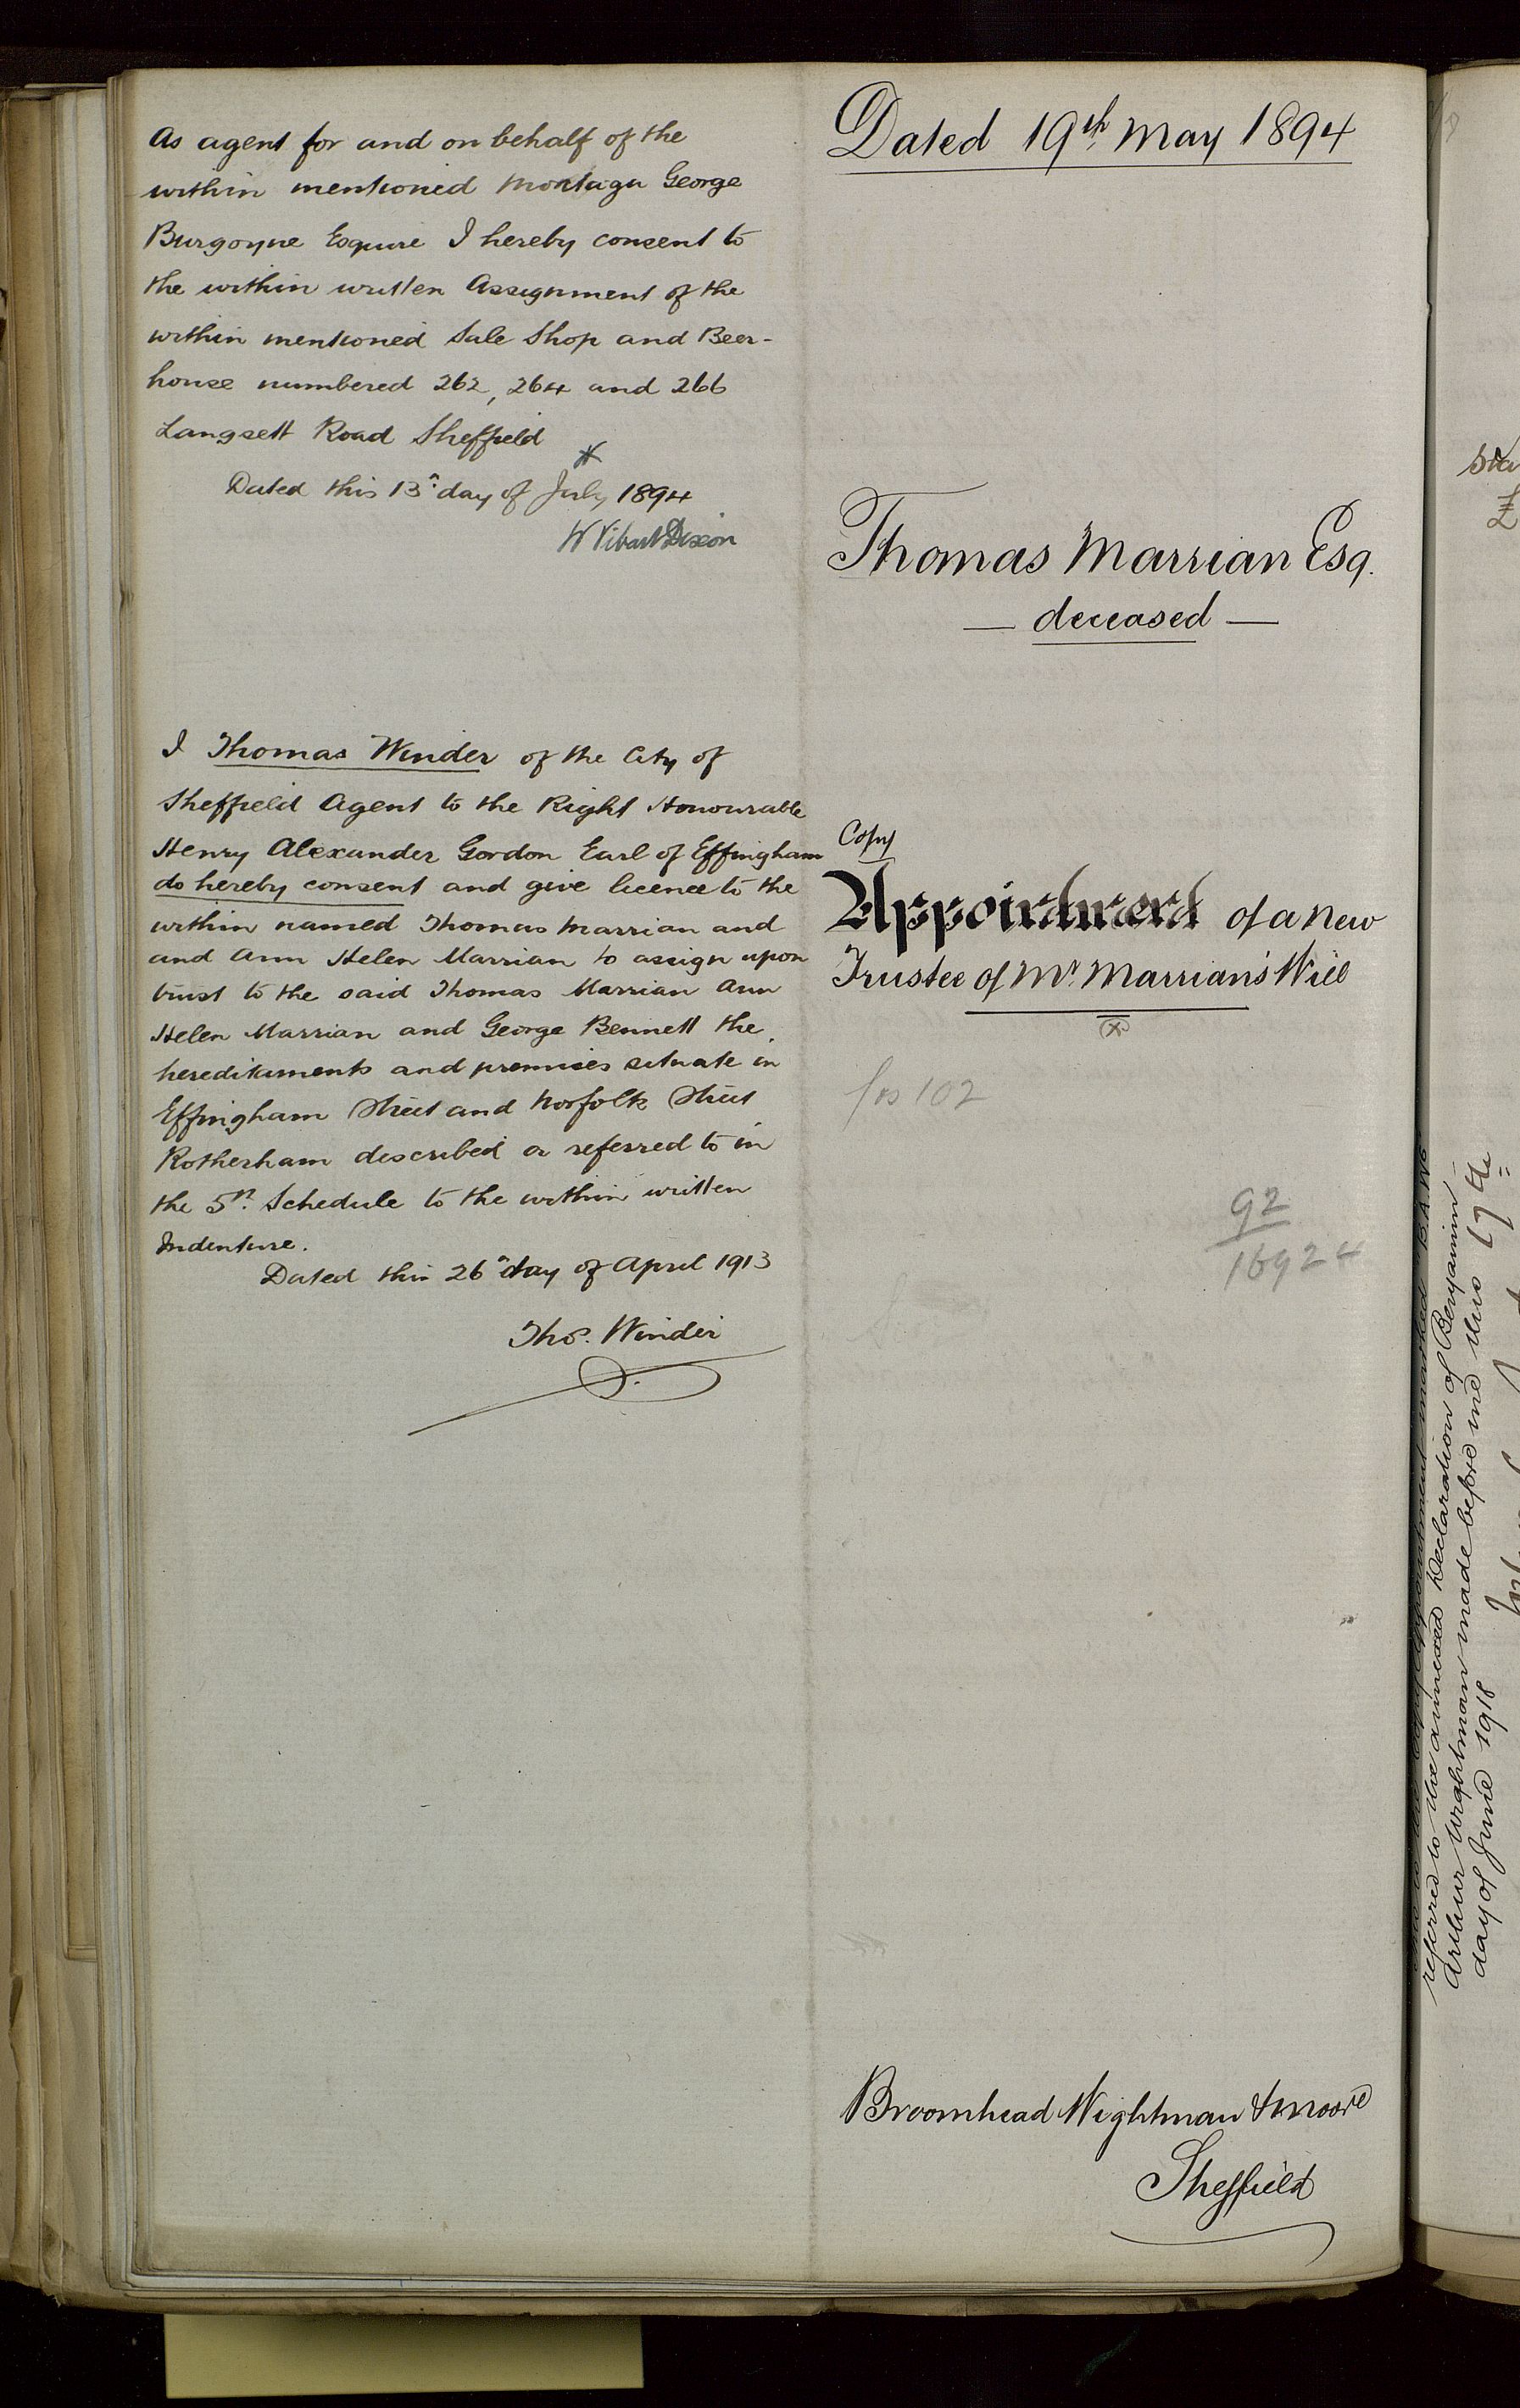 As agent for and on behalf of the
within mentioned Montagu George
Burgoyne Esquire I hereby consent to
the within written Assignment of the
within mentioned Sale Shop and Beer-
house numbered 262, 264 and 266
Langsett Road Sheffield
Dated this 13th day of July 1894
W Vibart Dixon
I Thomas Winder of the City of
Sheffield Agent to the Right Honourable
Henry Alexander Gordon Earl of Effingham
do hereby consent and give licence to the
within named Thomas Marrian and
and Ann Helen Marrian to assign upon
trust to the said Thomas Marrian Ann
Helen Marrian and George Bennett the
hereditaments and premises situate in
Effingham Street and Norfolk Street
Rotherham described or referred to in
the 5th Schedule to the within written
Indenture.
Dated this 26th day of April 1913
Thos. Winder
Dated 19th May 1894
Thomas Marrian Esq.
— deceased —
Copy
Appointment of a New
Trustee of Mr. Marrian's Will
(X)
fos 102
92
16924
Broomhead Wightman & Moore
Sheffield
referred to in the annexed Declaration of Benjamin
Arthur Wightman made before me this 17th
day of June 1918